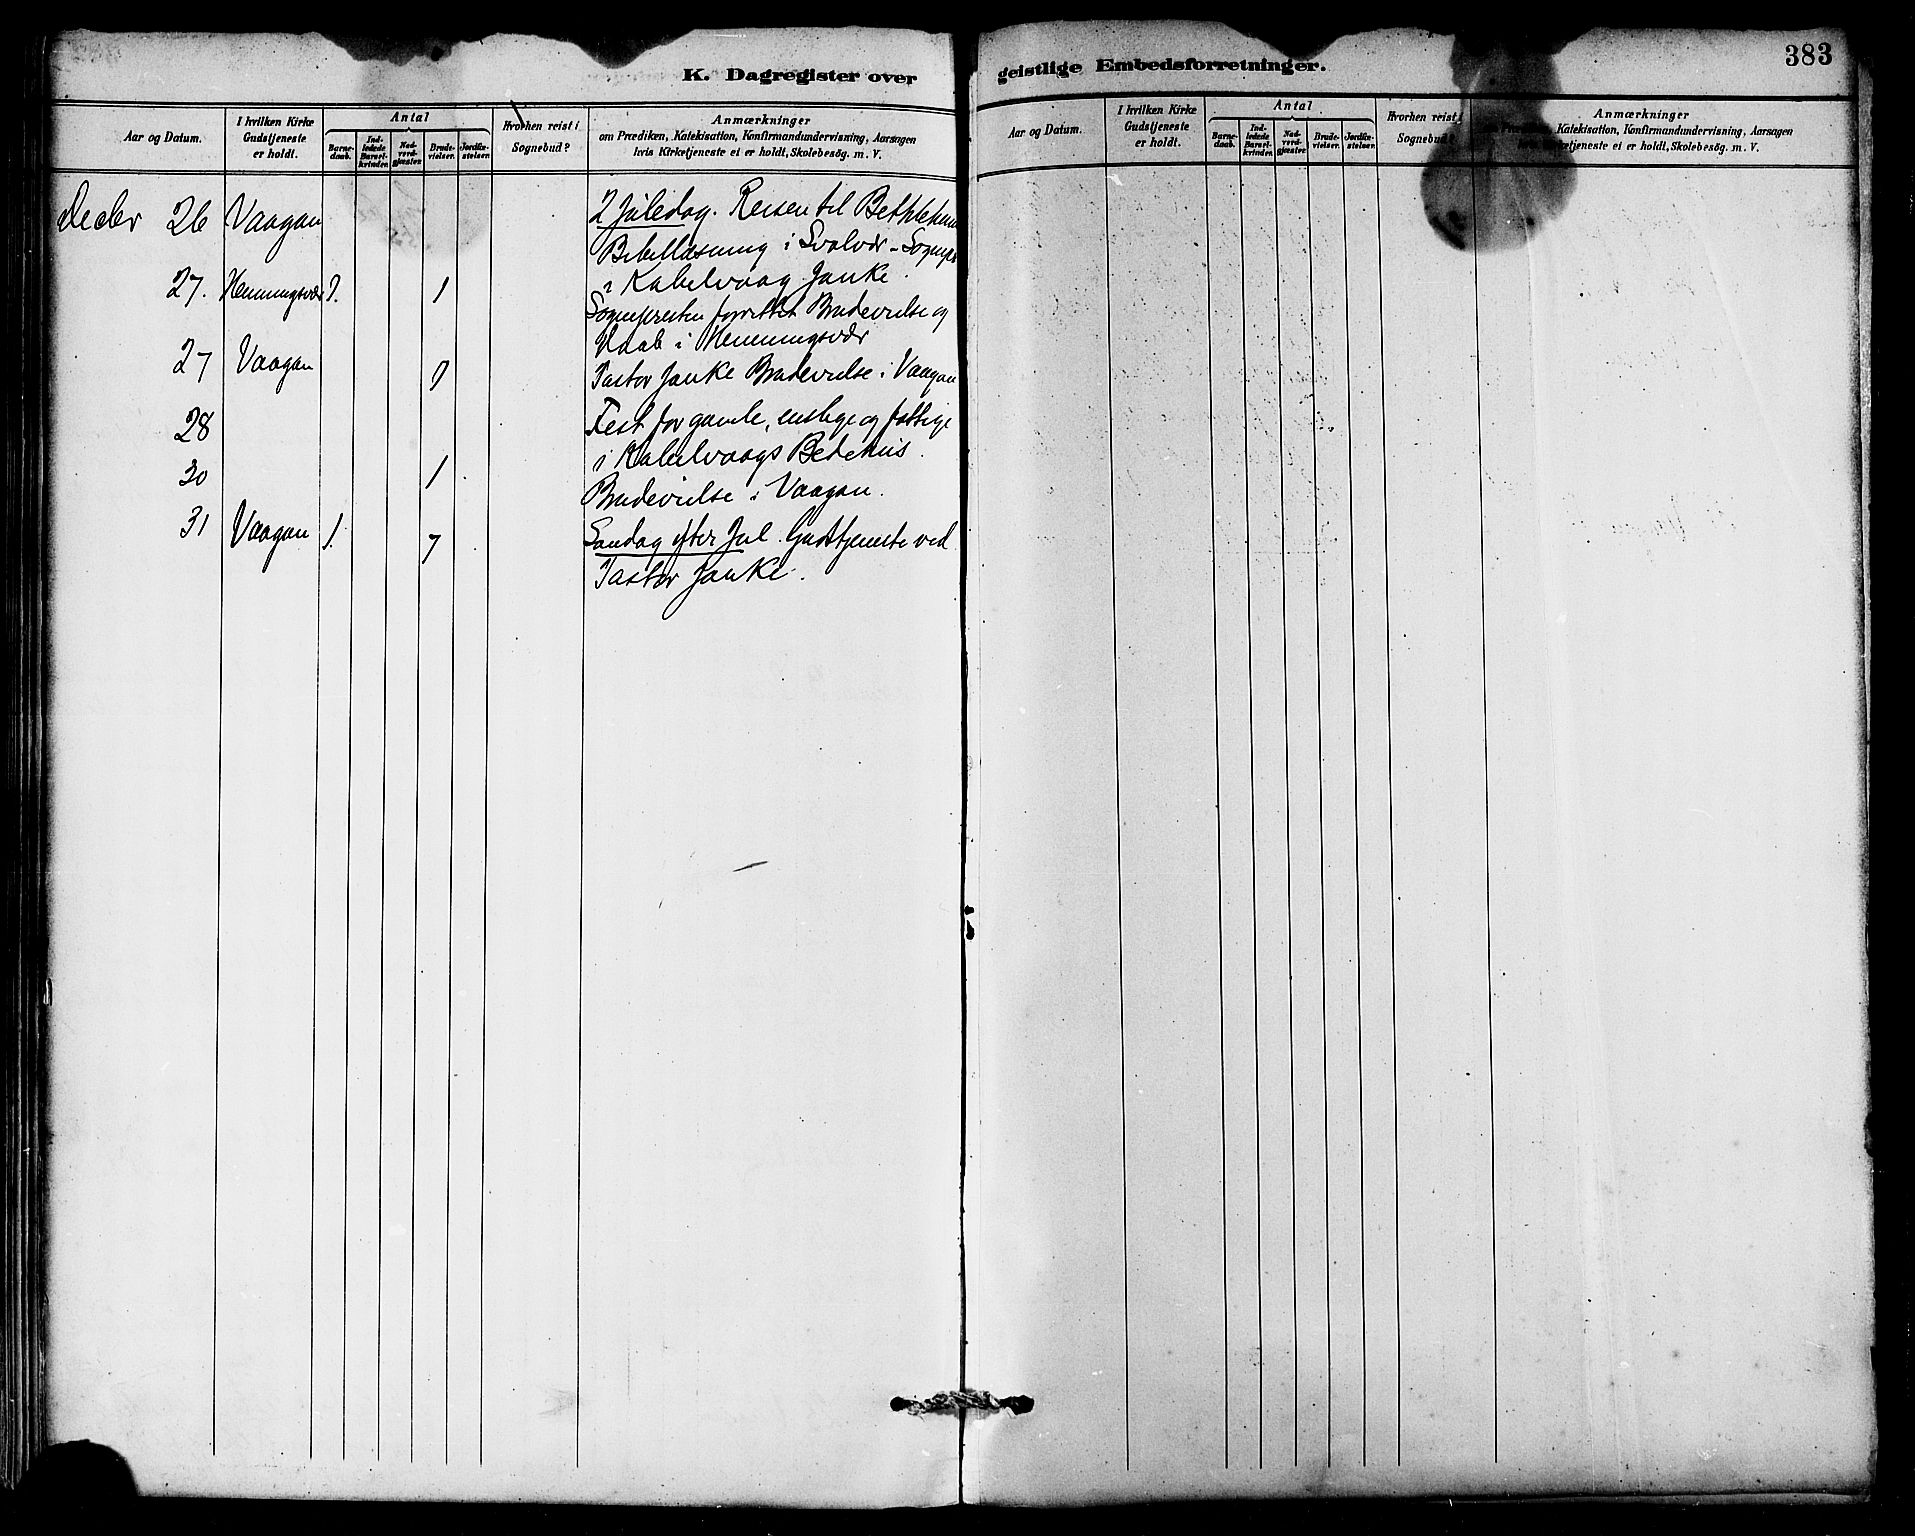 K. Dagregister over geistlige Embedsforretninger.
383
Aar og Datum.
I hvilken Kirke Gudstjeneste er holdt.
Antal
Barne-daab.
Ind-ledede Barsel-kvinder.
Nad-verd-gjæster.
Brude-vielser.
Jordfæ-stelser.
Hvorhen reist i Sognebud?
Anmærkninger
om Prædiken, Katekisation, Konfirmandundervisning, Aarsagen
hvis Kirketjeneste ei er holdt, Skolebesög. m. V.
Decbr 26 Vaagan 2 Juledag. Reisen til Bethlehem
Bibellæsning i Svolvær - Sognepr
i Kabelvaag Janke.
27. Henningsvær 7. 1
Sognepresten forrettet Brudevielse og
Daab i Henningsvær
27 Vaagan 7 Pastor Janke Brudevielse i Vaagan
28 Fest for gamle, enslige og fattige
i Kabelvaags Bedehus.
30 1
Brudevielse i Vaagan.
31 Vaagan 1. 7 Søndag efter Jul. Gudstjeneste ved
Pastor Janke.
Aar og Datum.
I hvilken Kirke Gudstjeneste er holdt.
Antal
Barne-daab.
Ind-ledede Barsel-kvinder.
Nad-verd-gjæster.
Brude-vielser.
Jordfæ-stelser.
Hvorhen reist i Sognebud?
Anmærkninger
Katekisation, Konfirmandundervisning, Aarsagen
ei er holdt, Skolebesög. m. V.